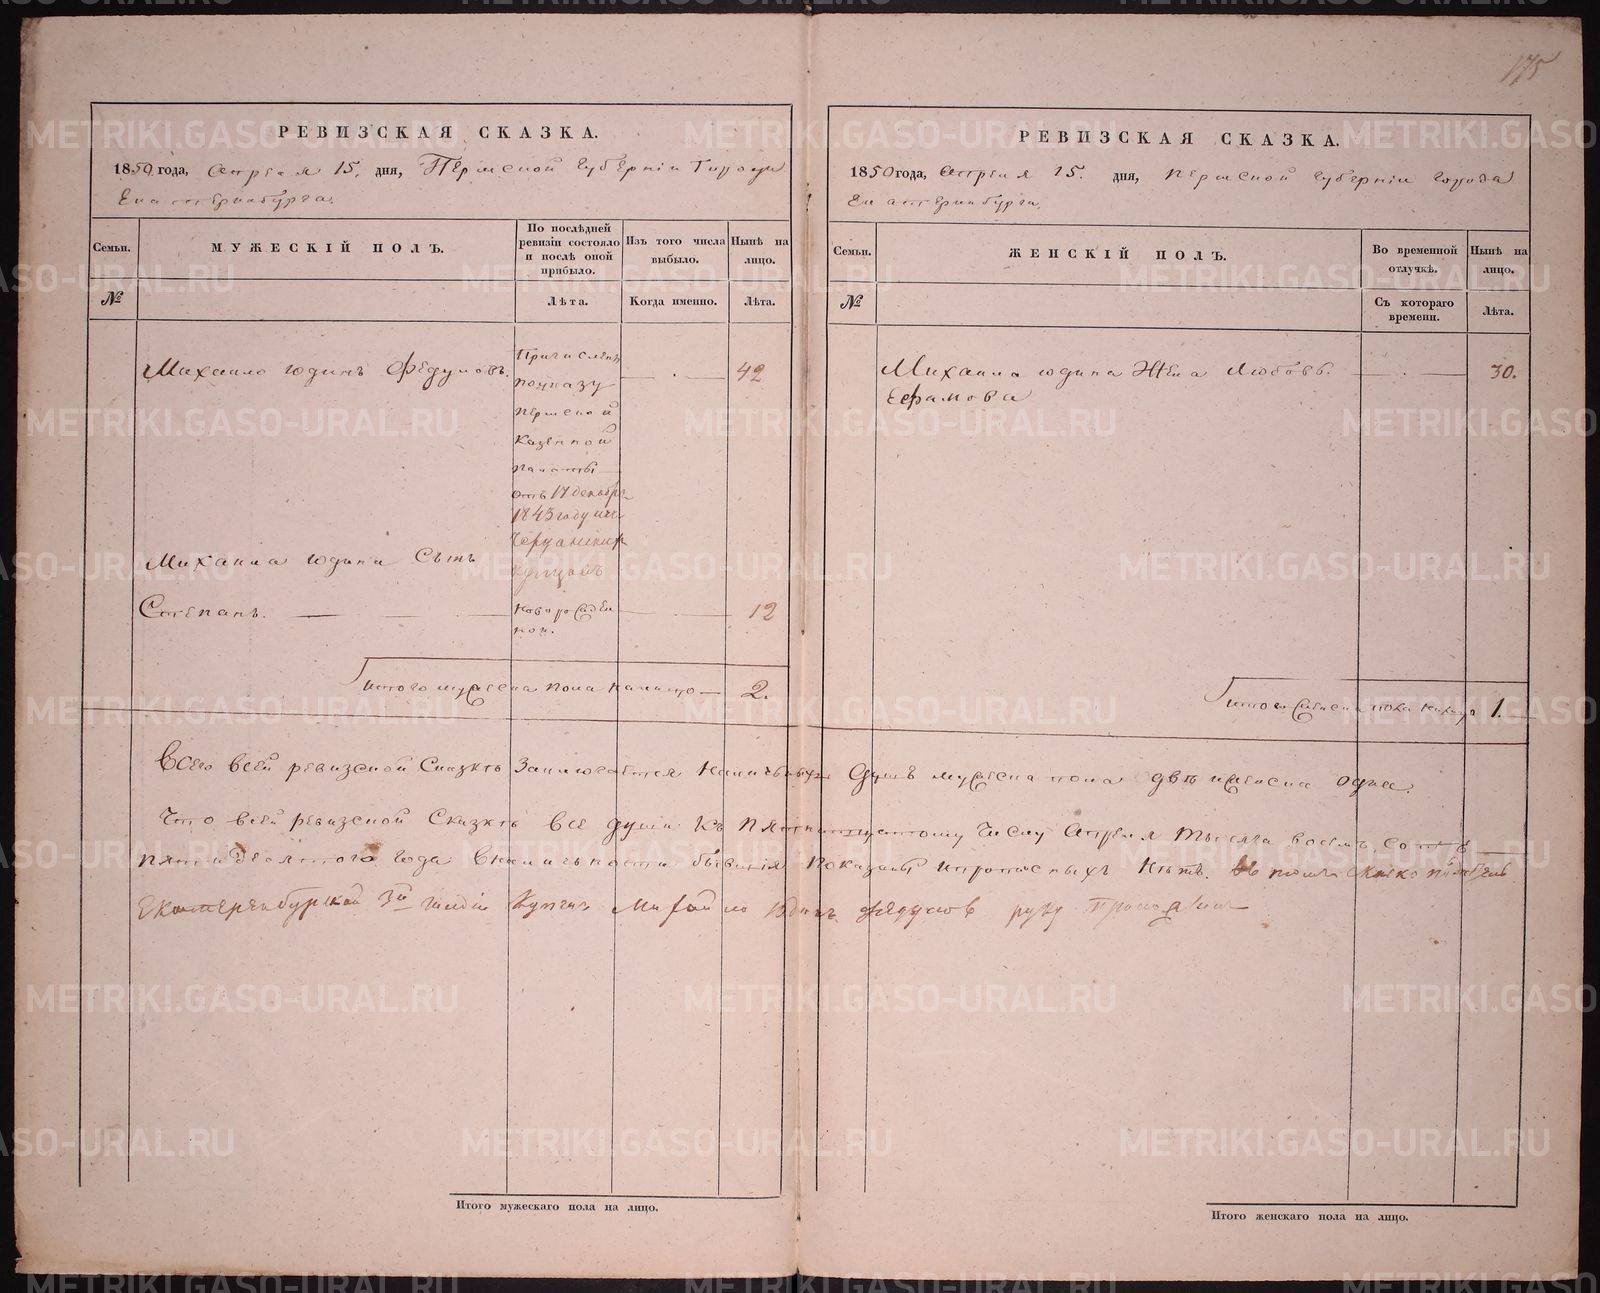 175
РЕВИЗСКАЯ СКАЗКА.
1850 года, Апреля 15. дня, Пермской Губернiи Города
Екатеринбурга.
Семьи.
МУЖЕСКІЙ ПОЛЪ.
По послѣдней ревизіи состояло и послѣ оной прибыло.
Изъ того числа выбыло.
Нынѣ на лицо.
№
Лѣта.
Когда именно.
Лѣта.
Михаило Юдинъ Федуловъ.
42
Причисленъ
поуказу
Пермской
Казенной
палаты
отъ 17 декабря
1843 году изъ
купцовъ
Михаила Юдина Сынъ
Степанъ.
новорожден
ной.
12
Итого мужеска пола налицо
2.
РЕВИЗСКАЯ СКАЗКА.
1850 года, Апреля 15. дня, Пермской Губернiи города
Екатеринбурга.
Семьи.
ЖЕНСКІЙ ПОЛЪ.
Во временной отлучкѣ.
Нынѣ на лицо.
№
Съ котораго времени.
Лѣта.
Михаила Юдина Жена Любовь.
Ефимова
30.
Итого женска пола налицо 1.
Всего всей ревизской Сказкѣ Заключается Наличныхъ Душъ мужеска пола двѣ женска одна.
Что всей ревизской Сказкѣ все души къ пятнатцатому Числу Апреля тысяча восемь сотъ
пятидесятого года вналичности бывшiя показаны ипрописныхъ Нѣтъ. Въ томъ
Екатеринбургской 3й гилдiи Купецъ Михайло Юдинъ Федуловъ руку приложилъ
Итого мужескаго пола на лицо.
Итого женскаго пола на лицо.
METRIKI.GASO-URAL.RU